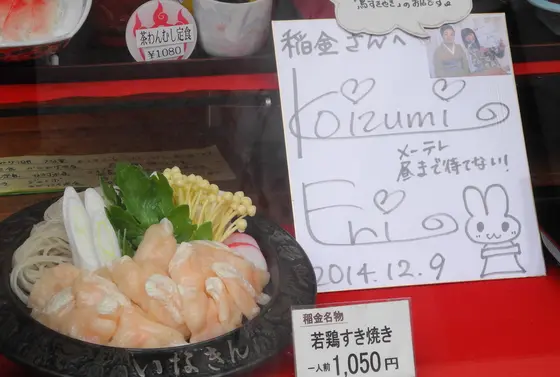 「鳥すきやき」のお店です。
茶わんむし定食
￥1080
稲金さんへ
Koizumi
メ〜テレ
昼まで待てない!
Eri
2014.12.9
いなきん
稲金名物
若鶏すき焼き
一人前 1,050円